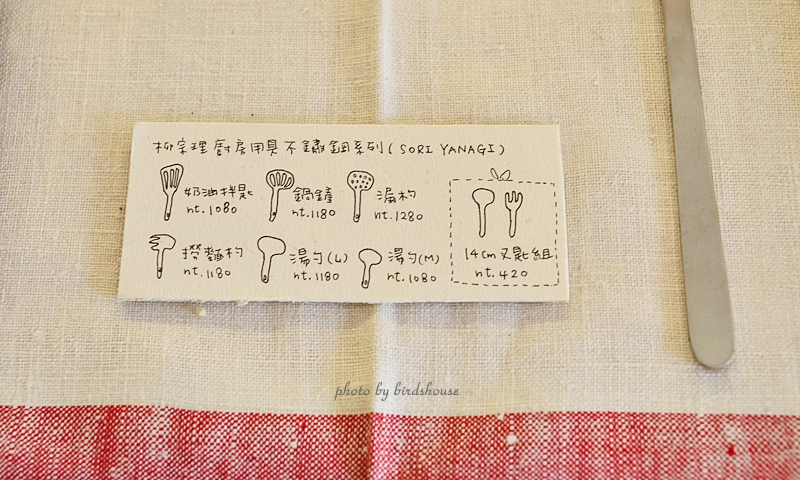 柳宗理 廚房用具 不鏽鋼系列(SORI YANAGI)
奶油拌匙
nt.1080
鍋鏟
nt.1180
漏杓
nt.1280
撈麵杓
nt.1180
湯勺(L)
nt.1180
湯勺(M)
nt.1080
14cm 叉匙組
nt.420
photo by birdshouse